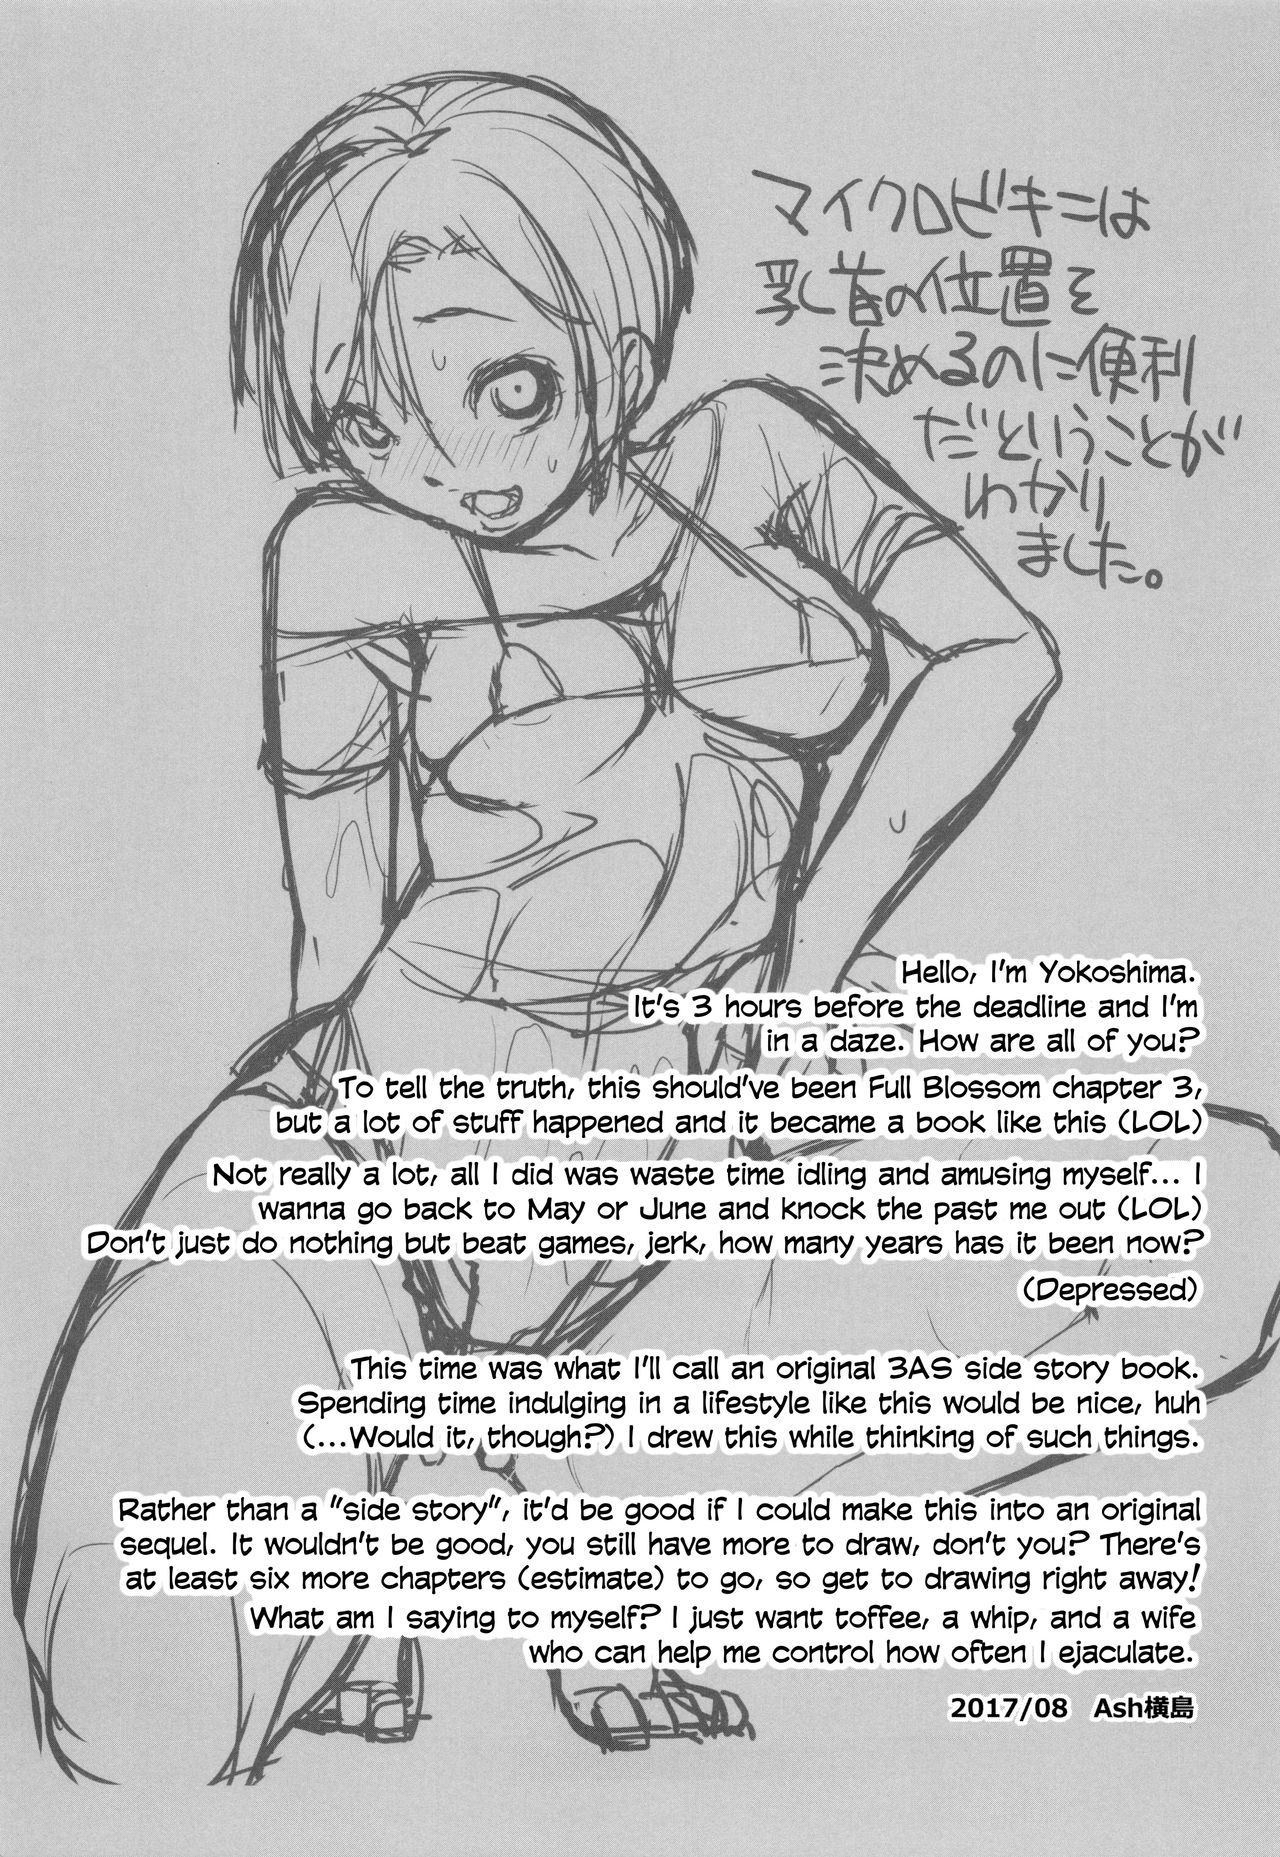 マイクロビキニは
乳首の位置を
決めるのに便利
だということが
わかり
ました。
Hello, I'm Yokoshima.
It's 3 hours before the deadline and I'm
in a daze. How are all of you?
To tell the truth, this should've been Full Blossom chapter 3,
but a lot of stuff happened and it became a book like this (LOL)
Not really a lot, all I did was waste time idling and amusing myself... I
wanna go back to May or June and knock the past me out (LOL)
Don't just do nothing but beat games, jerk, how many years has it been now?
(Depressed)
This time was what I'll call an original 3AS side story book.
Spending time indulging in a lifestyle like this would be nice, huh
(...Would it, though?) I drew this while thinking of such things.
Rather than a "side story", it'd be good if I could make this into an original
sequel. It wouldn't be good, you still have more to draw, don't you? There's
at least six more chapters (estimate) to go, so get to drawing right away!
What am I saying to myself? I just want toffee, a whip, and a wife
who can help me control how often I ejaculate.
2017/08 Ash横島